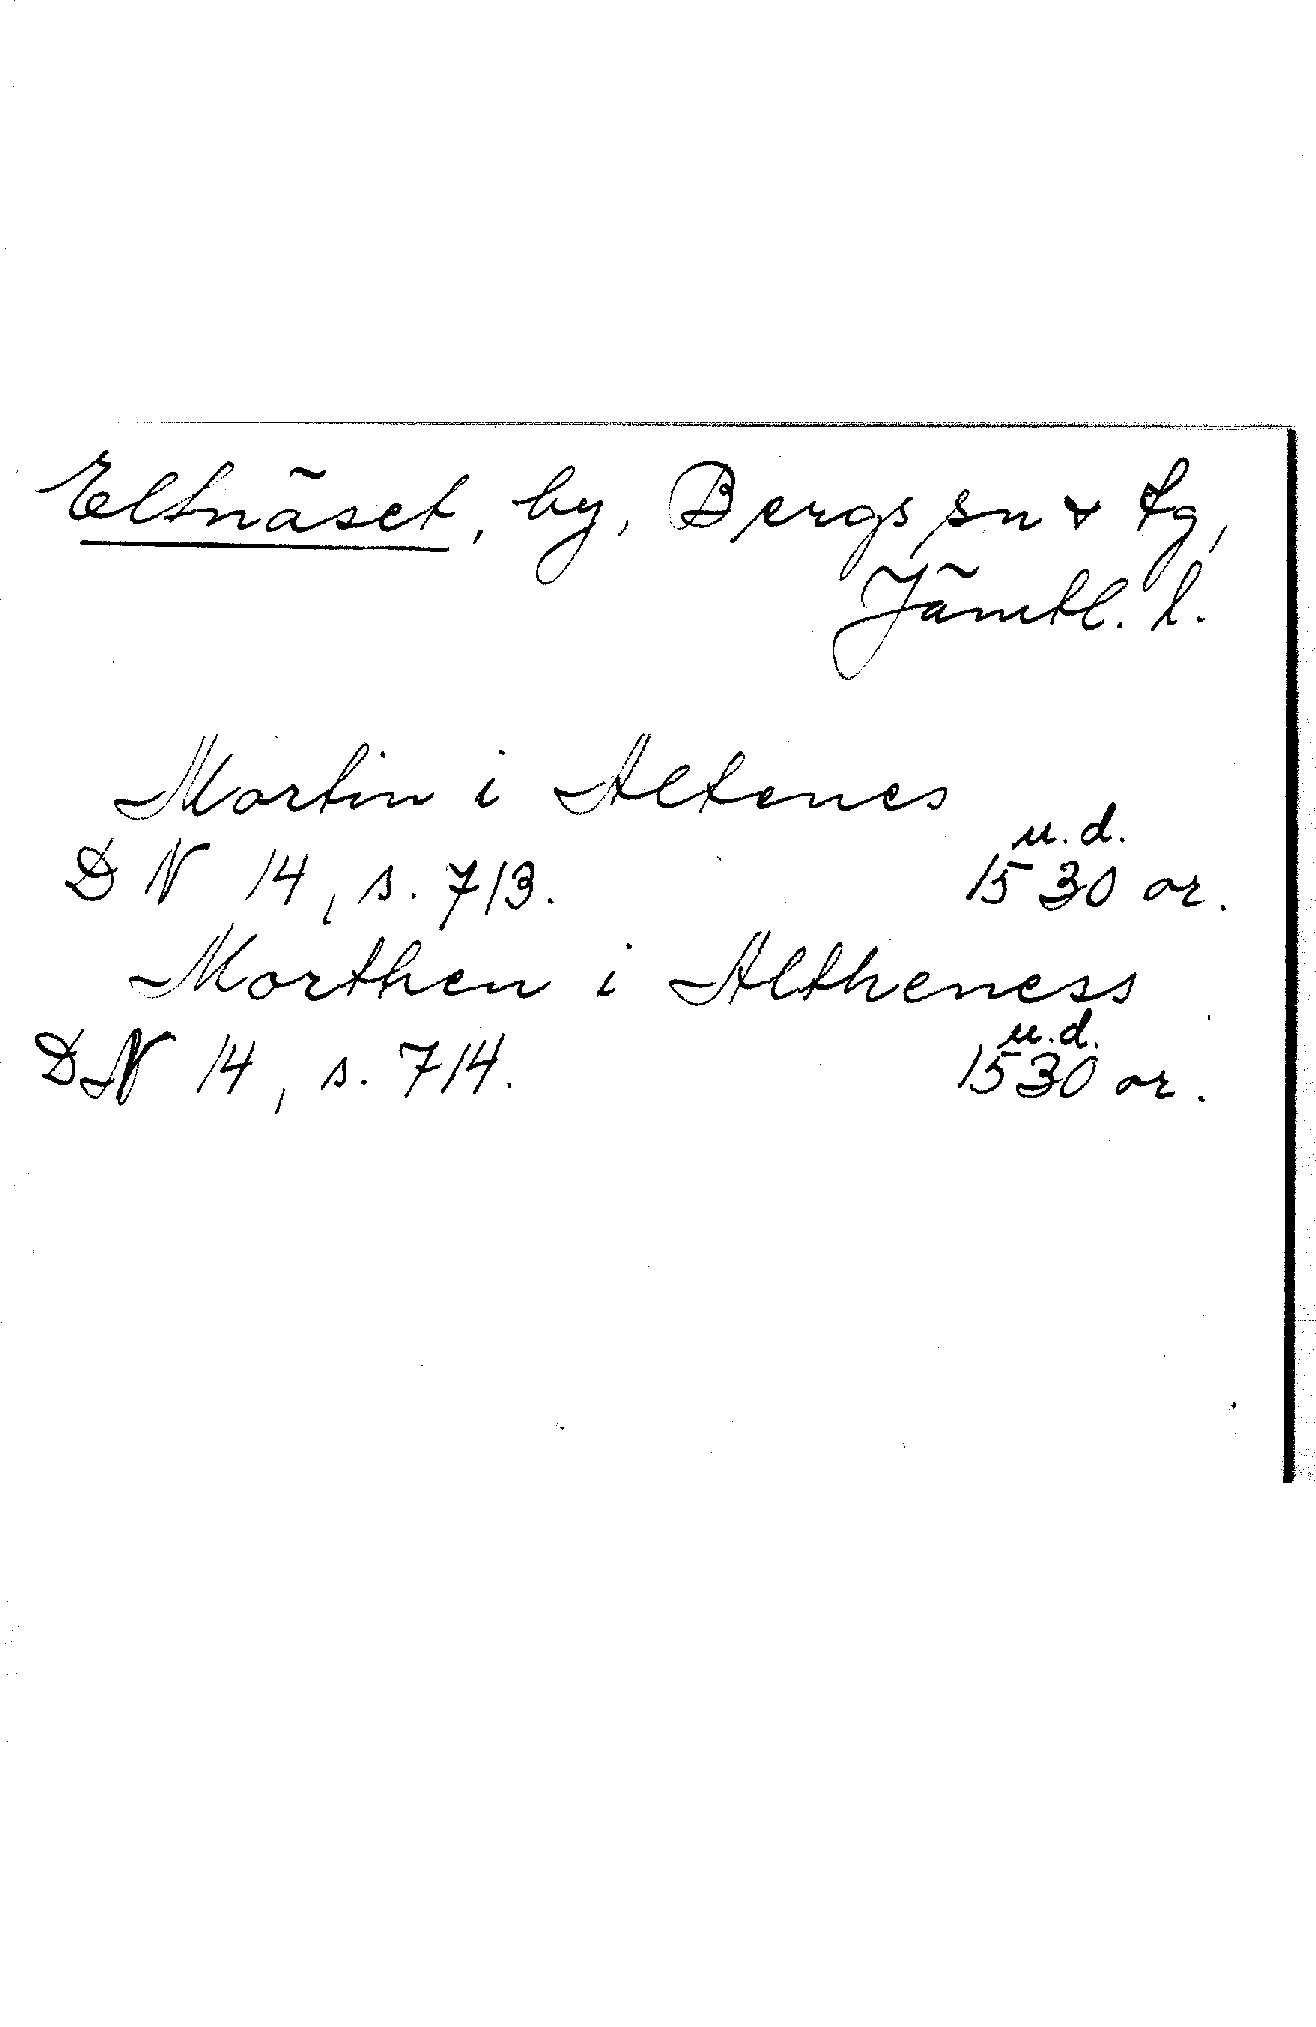 Eltnäset, by, Bergs sn & tg,
Jämtl. l.
Mortin i Altenes
u.d.
DN 14, s. 713. 1530 or.
Morthen i Altheness
u.d.
DN 14, s. 714. 1530 or.